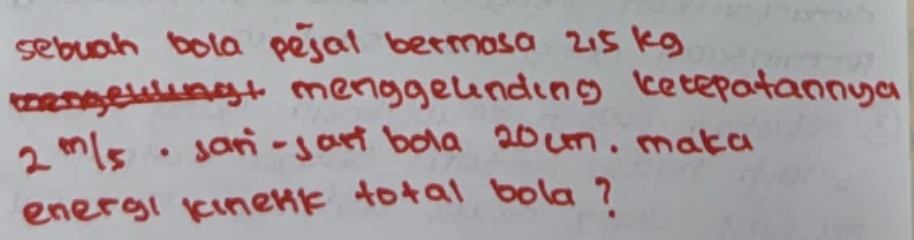 sebuah bola pejal bermasa 2,5 kg
menggelinding kecepatannya
2 m/s. Jari-Jari bola 20 cm. maka
energi kinetik total bola?